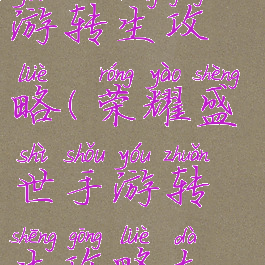 游转生攻
lüè róng yào shèng
略(荣耀盛
shì shǒu yóu zhuǎn
世手游转
shēng gōng lüè dà
生攻略大